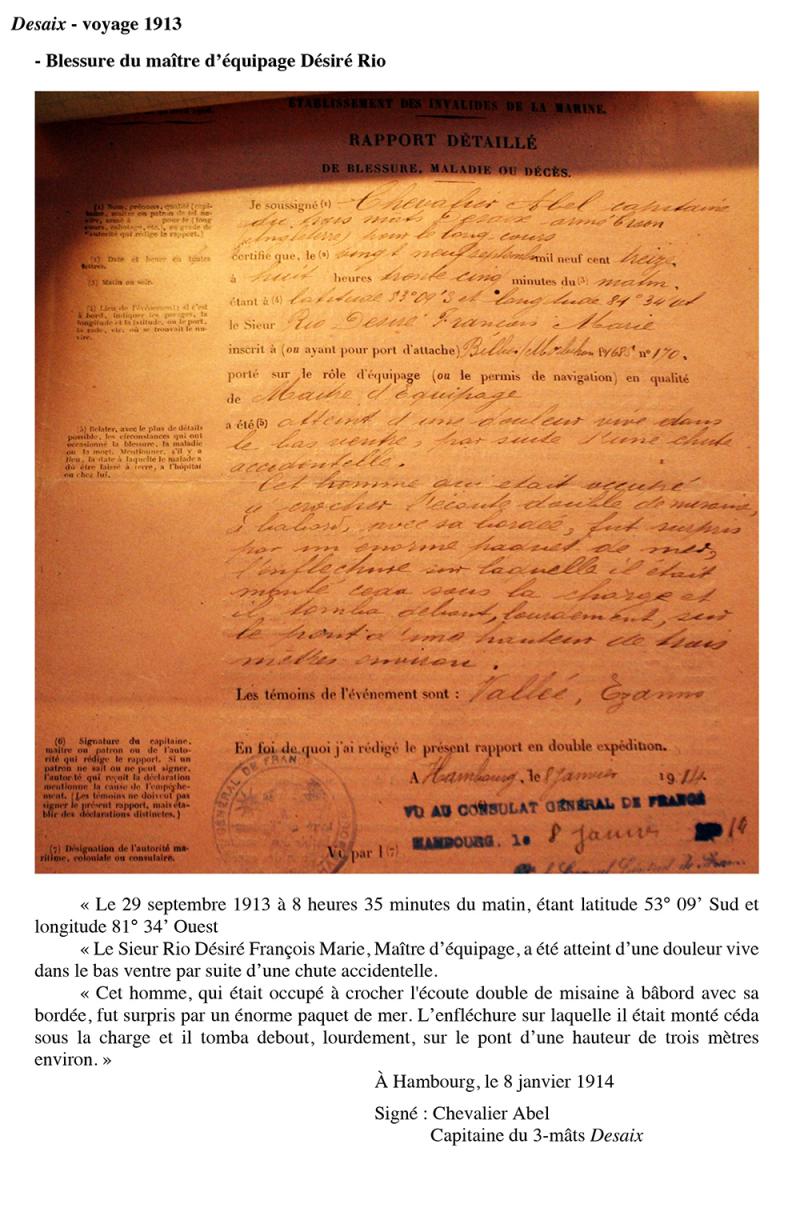 Desaix - voyage 1913
- Blessure du maître d’équipage Désiré Rio
ÉTABLISSEMENT DES INVALIDES DE LA MARINE.
RAPPORT DÉTAILLÉ
DE BLESSURE, MALADIE OU DÉCÈS.
(1) Nom, prénoms, qualité (capitaine, maître ou patron de tel navire, armé à pour le (long cours, cabotage, etc.), ou grade de l'autorité qui rédige le rapport.)
(2) Date et heure en toutes lettres.
(3) Matin ou soir.
(4) Lieu de l'événement; s'il est à bord, indiquer les parages, la longitude et la latitude, ou le port, la rade, etc. où se trouvait le navire.
Je soussigné (1) Chevalier Abel capitaine
du trois mats Desaix armé
(Angleterre) pour le long cours
certifie que, le (2) vingt neuf septembre mil neuf cent treize,
à huit heures trente cinq minutes du (3) matin,
étant à (4) latitude 53° 09' S et longitude 81° 34'
le Sieur Rio Désiré François Marie
inscrit à (ou ayant pour port d'attache) n° 170.
porté sur le rôle d'équipage (ou le permis de navigation) en qualité
de Maître d'Equipage
(5) Relater, avec le plus de détails
possible, les circonstances qui ont
occasionné la blessure, la maladie
ou la mort. Mentionner, s'il y a
lieu, la date à laquelle le malade a
dû être laissé à terre, à l'hôpital
ou chez lui.
a été (5) atteint d'une douleur vive dans
le bas ventre, par suite d'une chute
accidentelle.
Cet homme qui était occupé
à crocher l'écoute double de misaine,
à babord, avec sa bordée, fut surpris
par un enorme paquet de mer,
l'enflechure sur laquelle il était
monté ceda sous la charge et
il tomba debout, lourdement, sur
le pont d'une hauteur de trois
mètres environ.
Les témoins de l'événement sont : Vallée, Ezanno
(6) Signature du capitaine,
maître ou patron ou de l'auto-
rité qui rédige le rapport. Si un
patron ne sait ou ne peut signer,
l'autorité qui reçoit la déclaration
mentionne la cause de l'empêche-
ment. (Les témoins ne doivent pas
signer le présent rapport, mais éta-
blir des déclarations distinctes.)
(7) Désignation de l'autorité ma-
ritime, coloniale ou consulaire.
En foi de quoi j'ai rédigé le présent rapport en double expédition.
A Hambourg, le 8 janvier 1914.
VU AU CONSULAT GÉNÉRAL DE FRANCE
HAMBOURG, le 8 janvier 14
Vu par
« Le 29 septembre 1913 à 8 heures 35 minutes du matin, étant latitude 53° 09’ Sud et
longitude 81° 34’ Ouest
« Le Sieur Rio Désiré François Marie, Maître d’équipage, a été atteint d’une douleur vive
dans le bas ventre par suite d’une chute accidentelle.
« Cet homme, qui était occupé à crocher l'écoute double de misaine à bâbord avec sa
bordée, fut surpris par un énorme paquet de mer. L’enfléchure sur laquelle il était monté céda
sous la charge et il tomba debout, lourdement, sur le pont d’une hauteur de trois mètres
environ. »
À Hambourg, le 8 janvier 1914
Signé : Chevalier Abel
Capitaine du 3-mâts Desaix